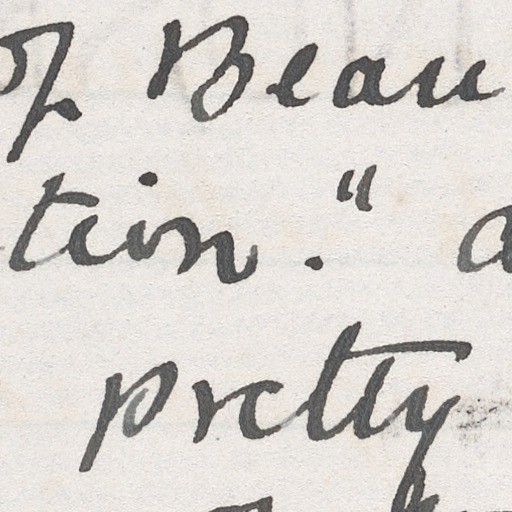 of Beau
tion."
pretty